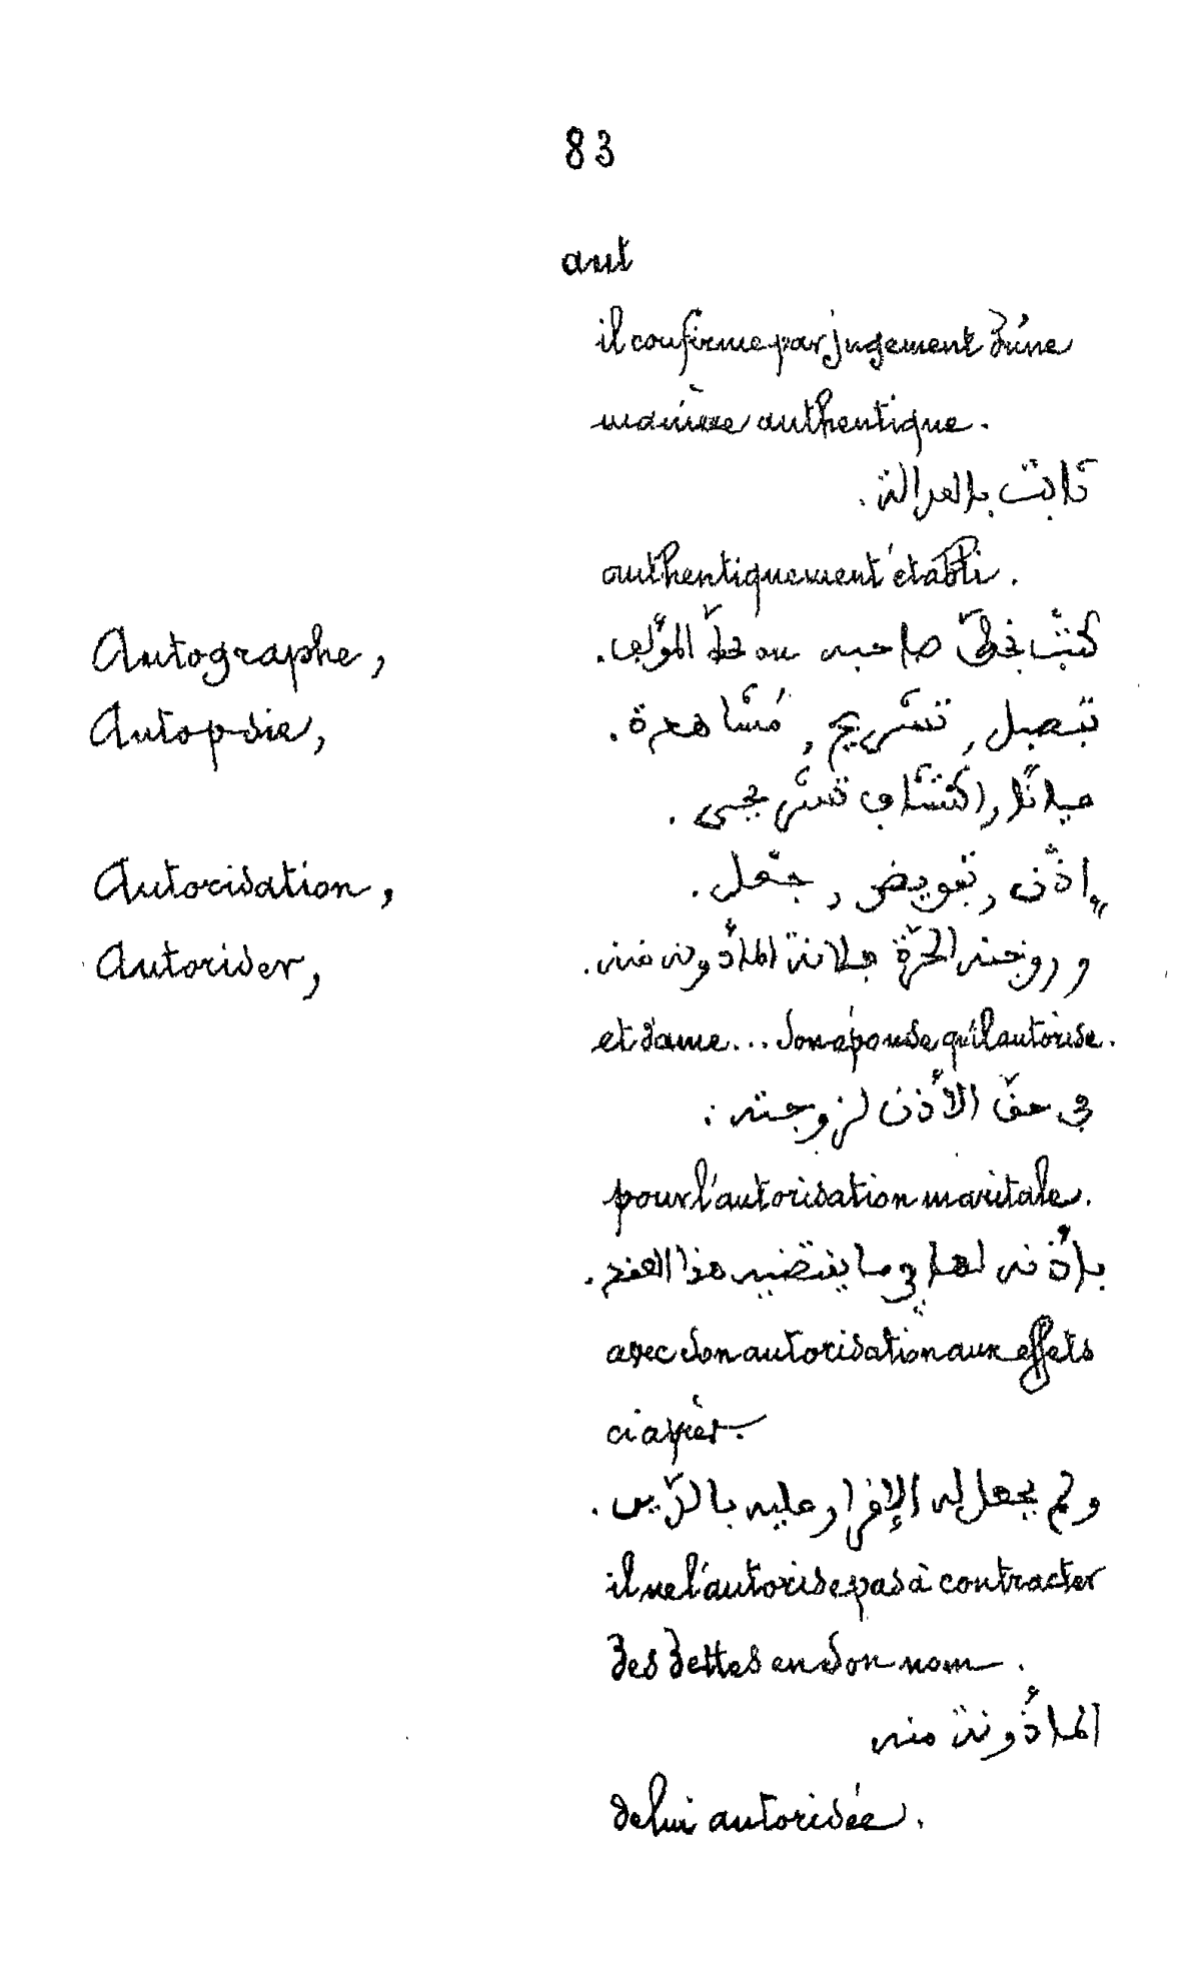 83
aut
il confirme par jugement d'une
manière authentique.
ثابت بالعدالة.
authentiquement établi.
Autographe, كتب بخطّ صاحبه ou خطّ المؤلّف.
Autopsie, تشريح, مُشاهدة.
عيانًا, اكتشاف تشريحي.
Autorisation, اذن, تفويض, جعل.
Autoriser, وزوجته الحرّة فلانة المأذونه منه.
et dame... son épouse qu'il autorise.
في حقّ الأذن لزوجته:
pour l'autorisation maritale.
بإذنه لها في ما يقتضيه هذا العقد.
avec son autorisation aux effets
ci après.
ولم يجعل له الإقرار عليه بالدّين.
il ne l'autorise pas à contracter
des dettes en son nom.
المأذونة منه
de lui autorisée.